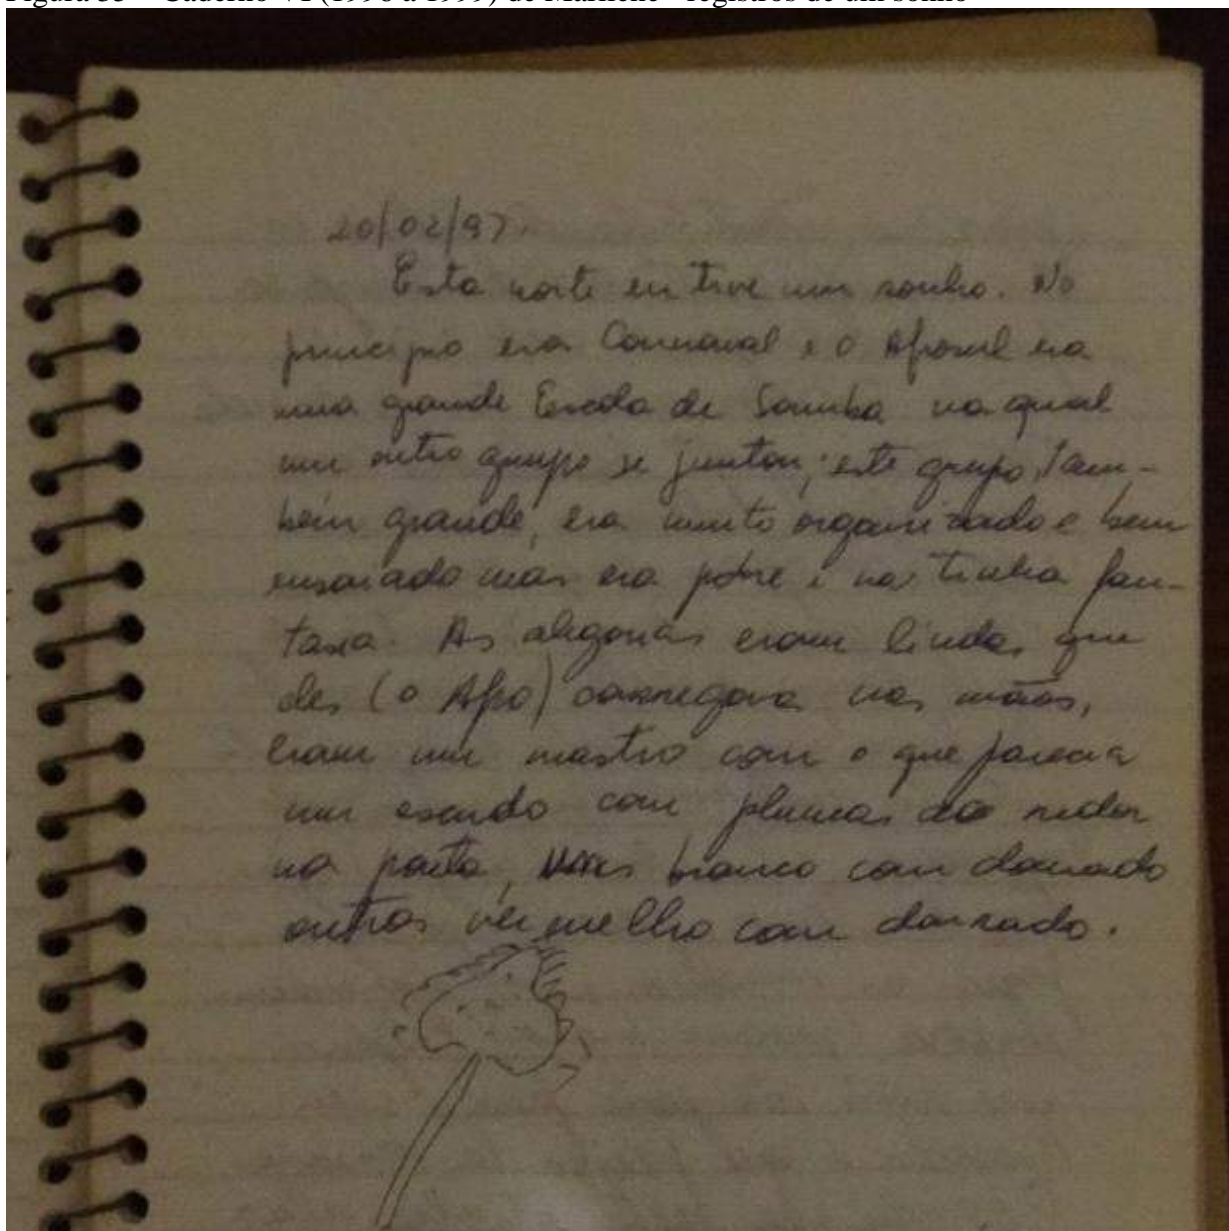 20/02/97.
Esta noite eu tive um sonho. No
principio era Carnaval e o Afrosul era
uma grande Escola de Samba na qual
um outro grupo se juntou; este grupo, tam-
bém grande, era muito organizado e bem
ensaiado mas era pobre e não tinha fan-
tasia. As alegorias eram lindas que
eles (o Afro) carregava nas mãos,
eram um mastro com o que parecia
um escudo com plumas ao redor
na ponta, branco com dourado
outros vermelho com dourado.